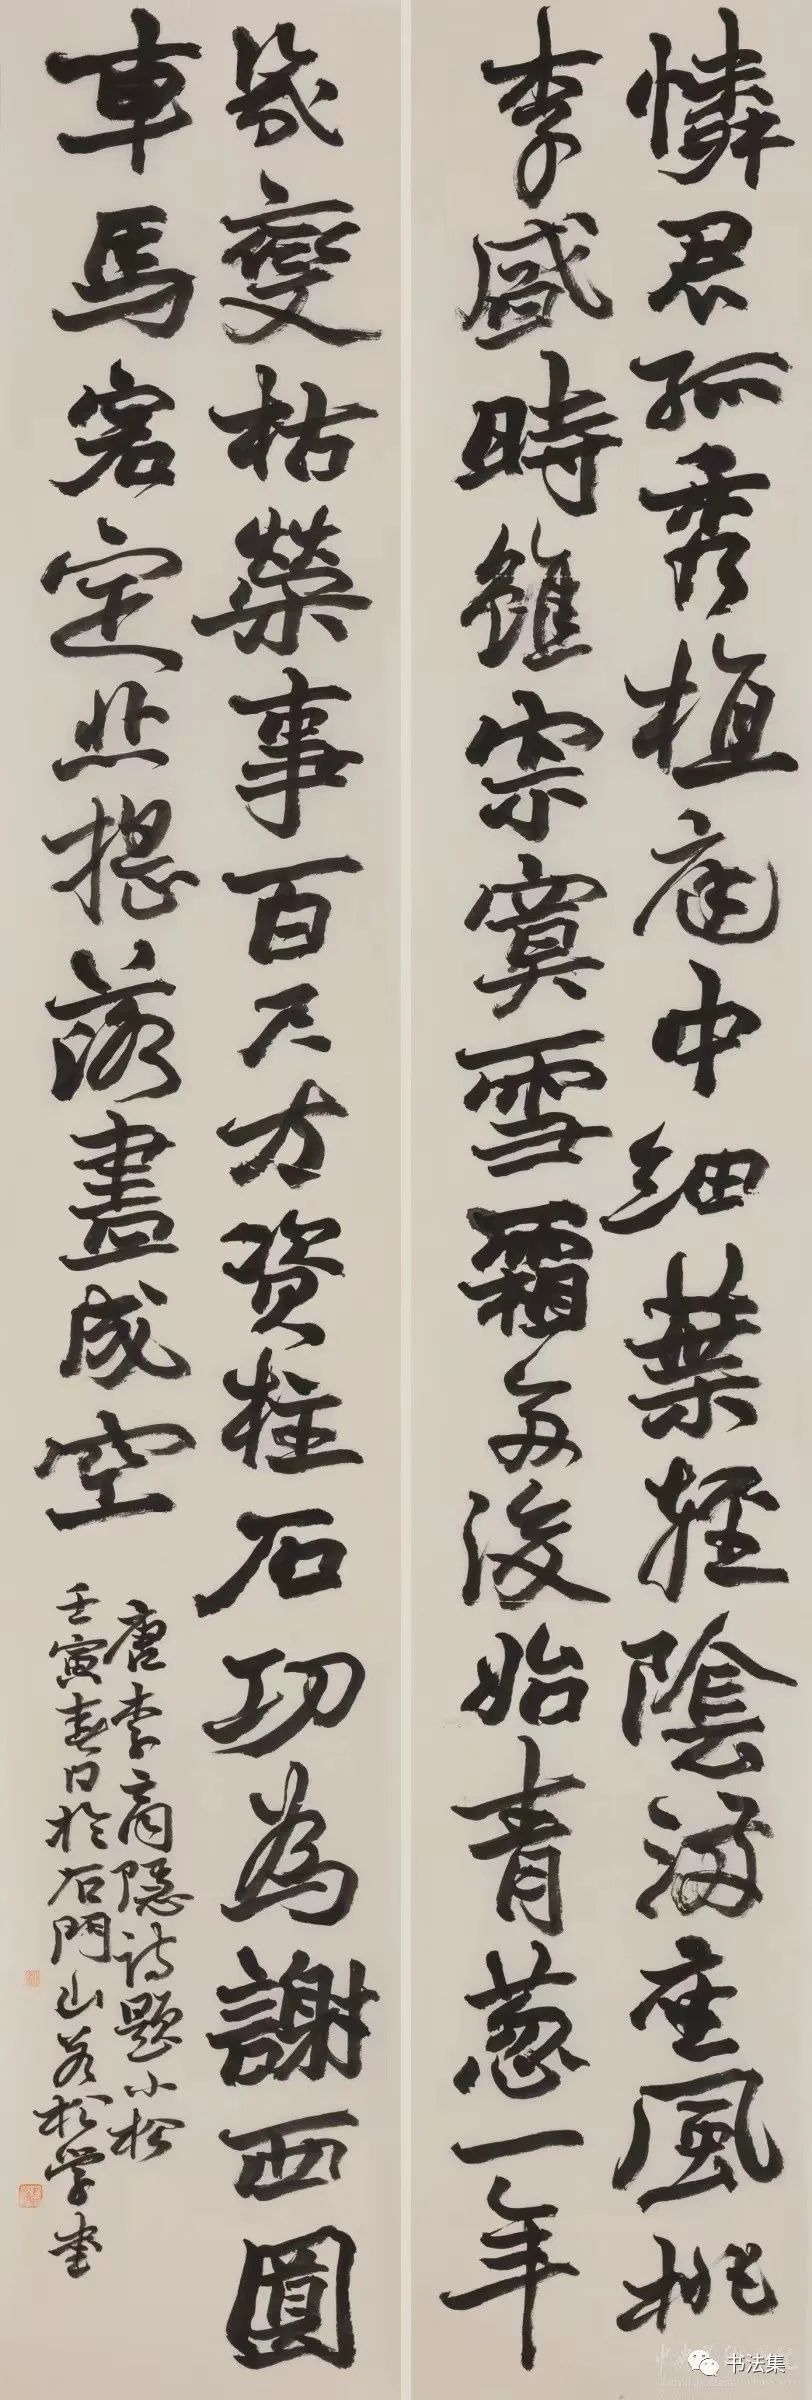 憐君孤秀植庭中細葉輕陰滿座風桃
李盛時雖寂寞雪霜多後始青葱一年
幾變枯榮事百尺方資柱石功為謝西園
車馬客定悲搖落盡成空
唐李商隱詩題小松
壬寅春日於石門山若松學堂
书法集